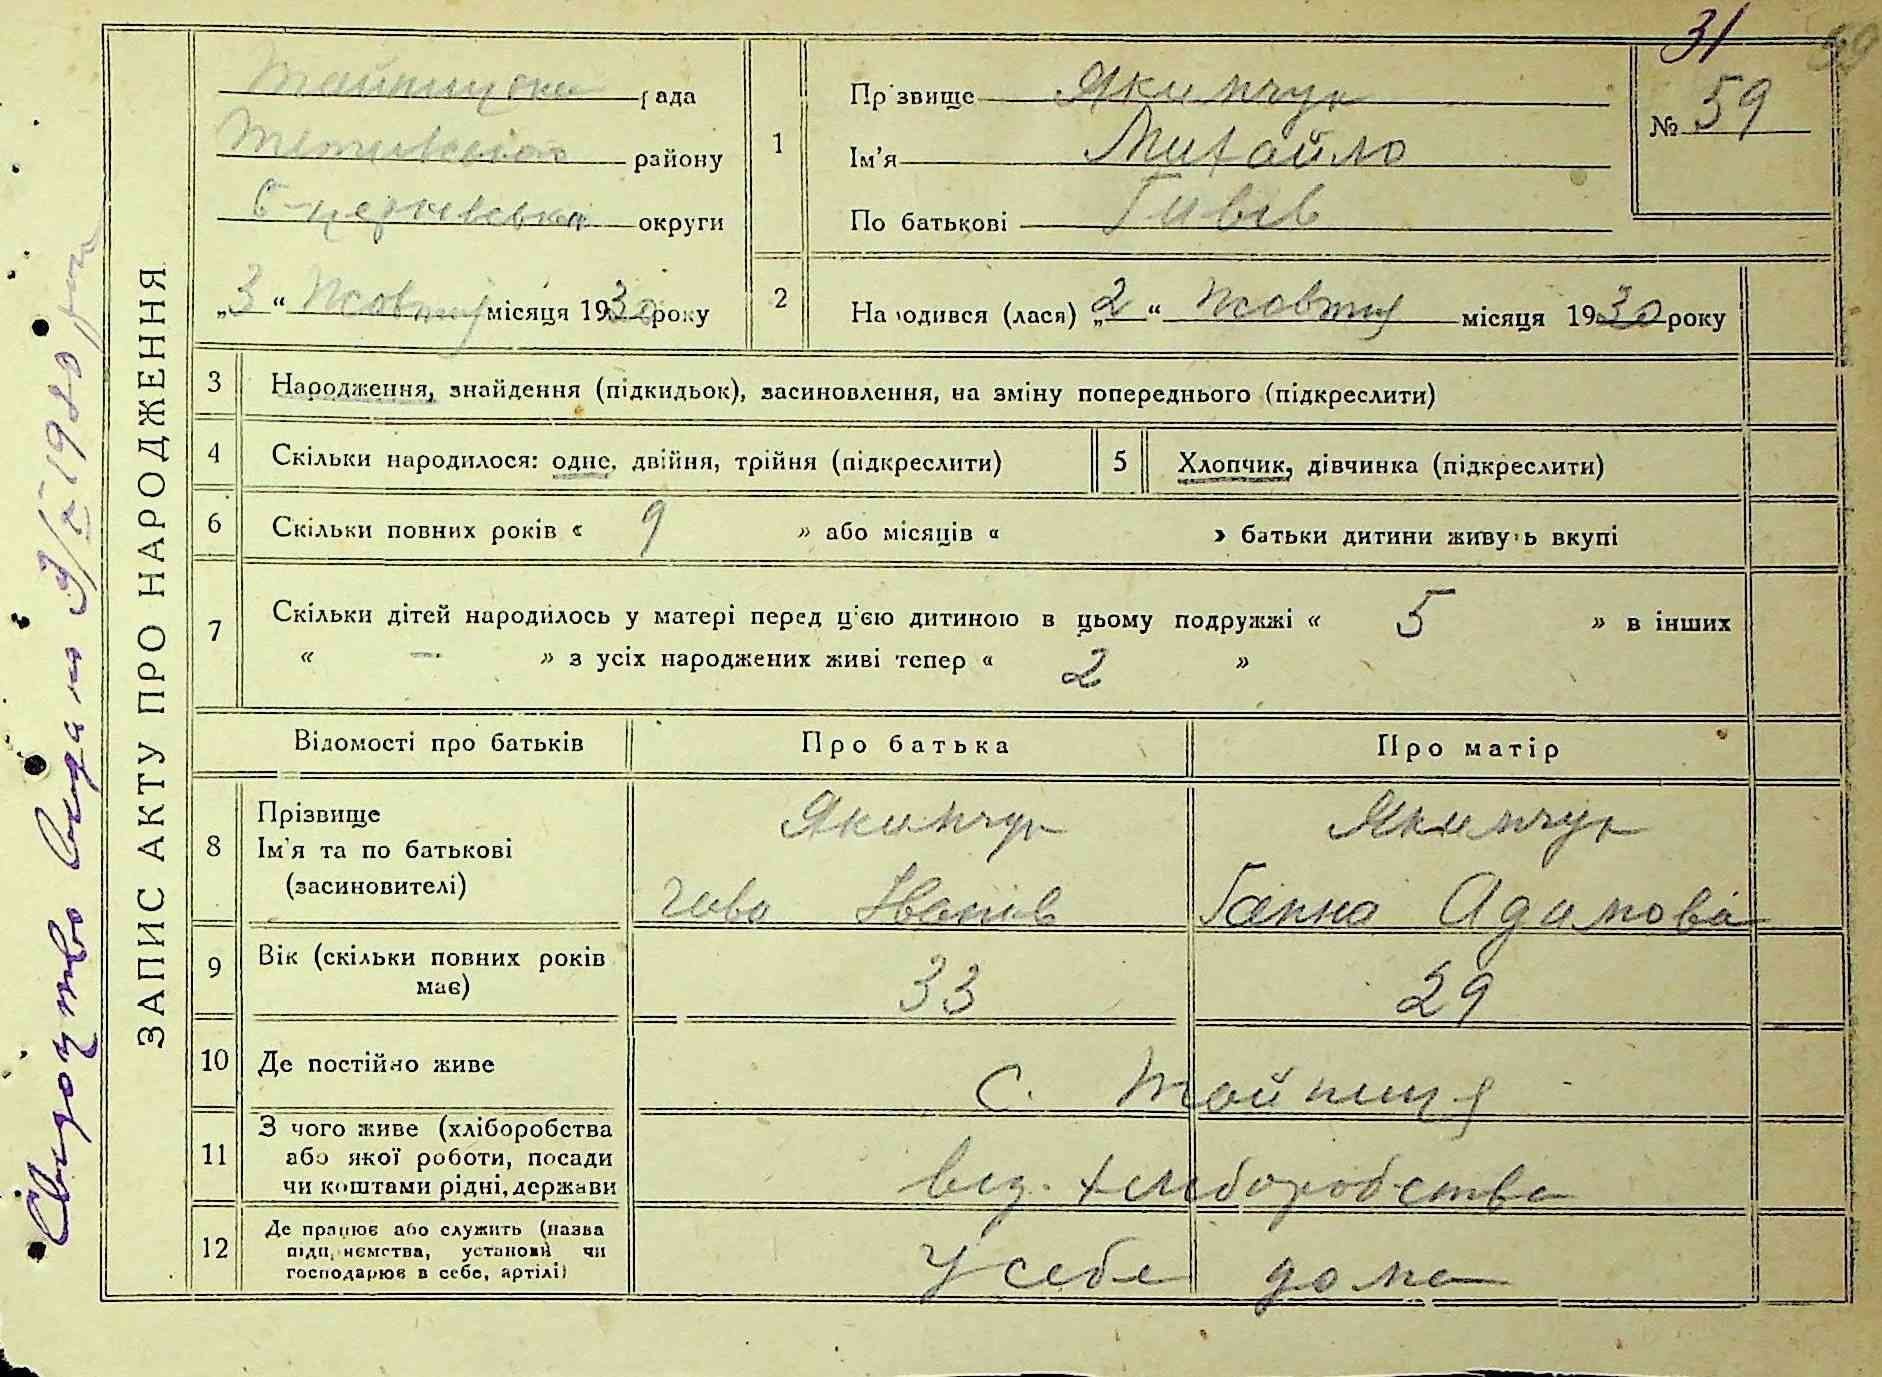 31
59
ЗАПИС АКТУ ПРО НАРОДЖЕННЯ
рада
району
Б-церківська округи
„3“ Жовтня місяця 1930 року
1
Прізвище Якимчук
Ім'я Михайло
По батькові
№ 59
2
Народився (лася) „2“ Жовтня місяця 1930 року
3 Народження, знайдення (підкидьок), засиновлення, на зміну попереднього (підкреслити)
4 Скільки народилося: одне, двійня, трійня (підкреслити)
5 Хлопчик, дівчинка (підкреслити)
6 Скільки повних років « 9 » або місяців « » батьки дитини живуть вкупі
7 Скільки дітей народилось у матері перед ц'єю дитиною в цьому подружжі « 5 » в інших
« — » з усіх народжених живі тепер « 2 »
Відомості про батьків Про батька Про матір
8 Прізвище
Ім'я та по батькові
(засиновителі)
Якимчук
Іванів
Якимчук
Ганна Адамова
9 Вік (скільки повних років
має)
33 29
10 Де постійно живе
с. Тайниця
11 З чого живе (хліборобства
або якої роботи, посади
чи коштами рідні, держави
від. хліборобства
12 Де працює або служить (назва
підприємства, установи чи
господарює в себе, артілі)
У себе дома
Свідоцтво видано 3/X 1930